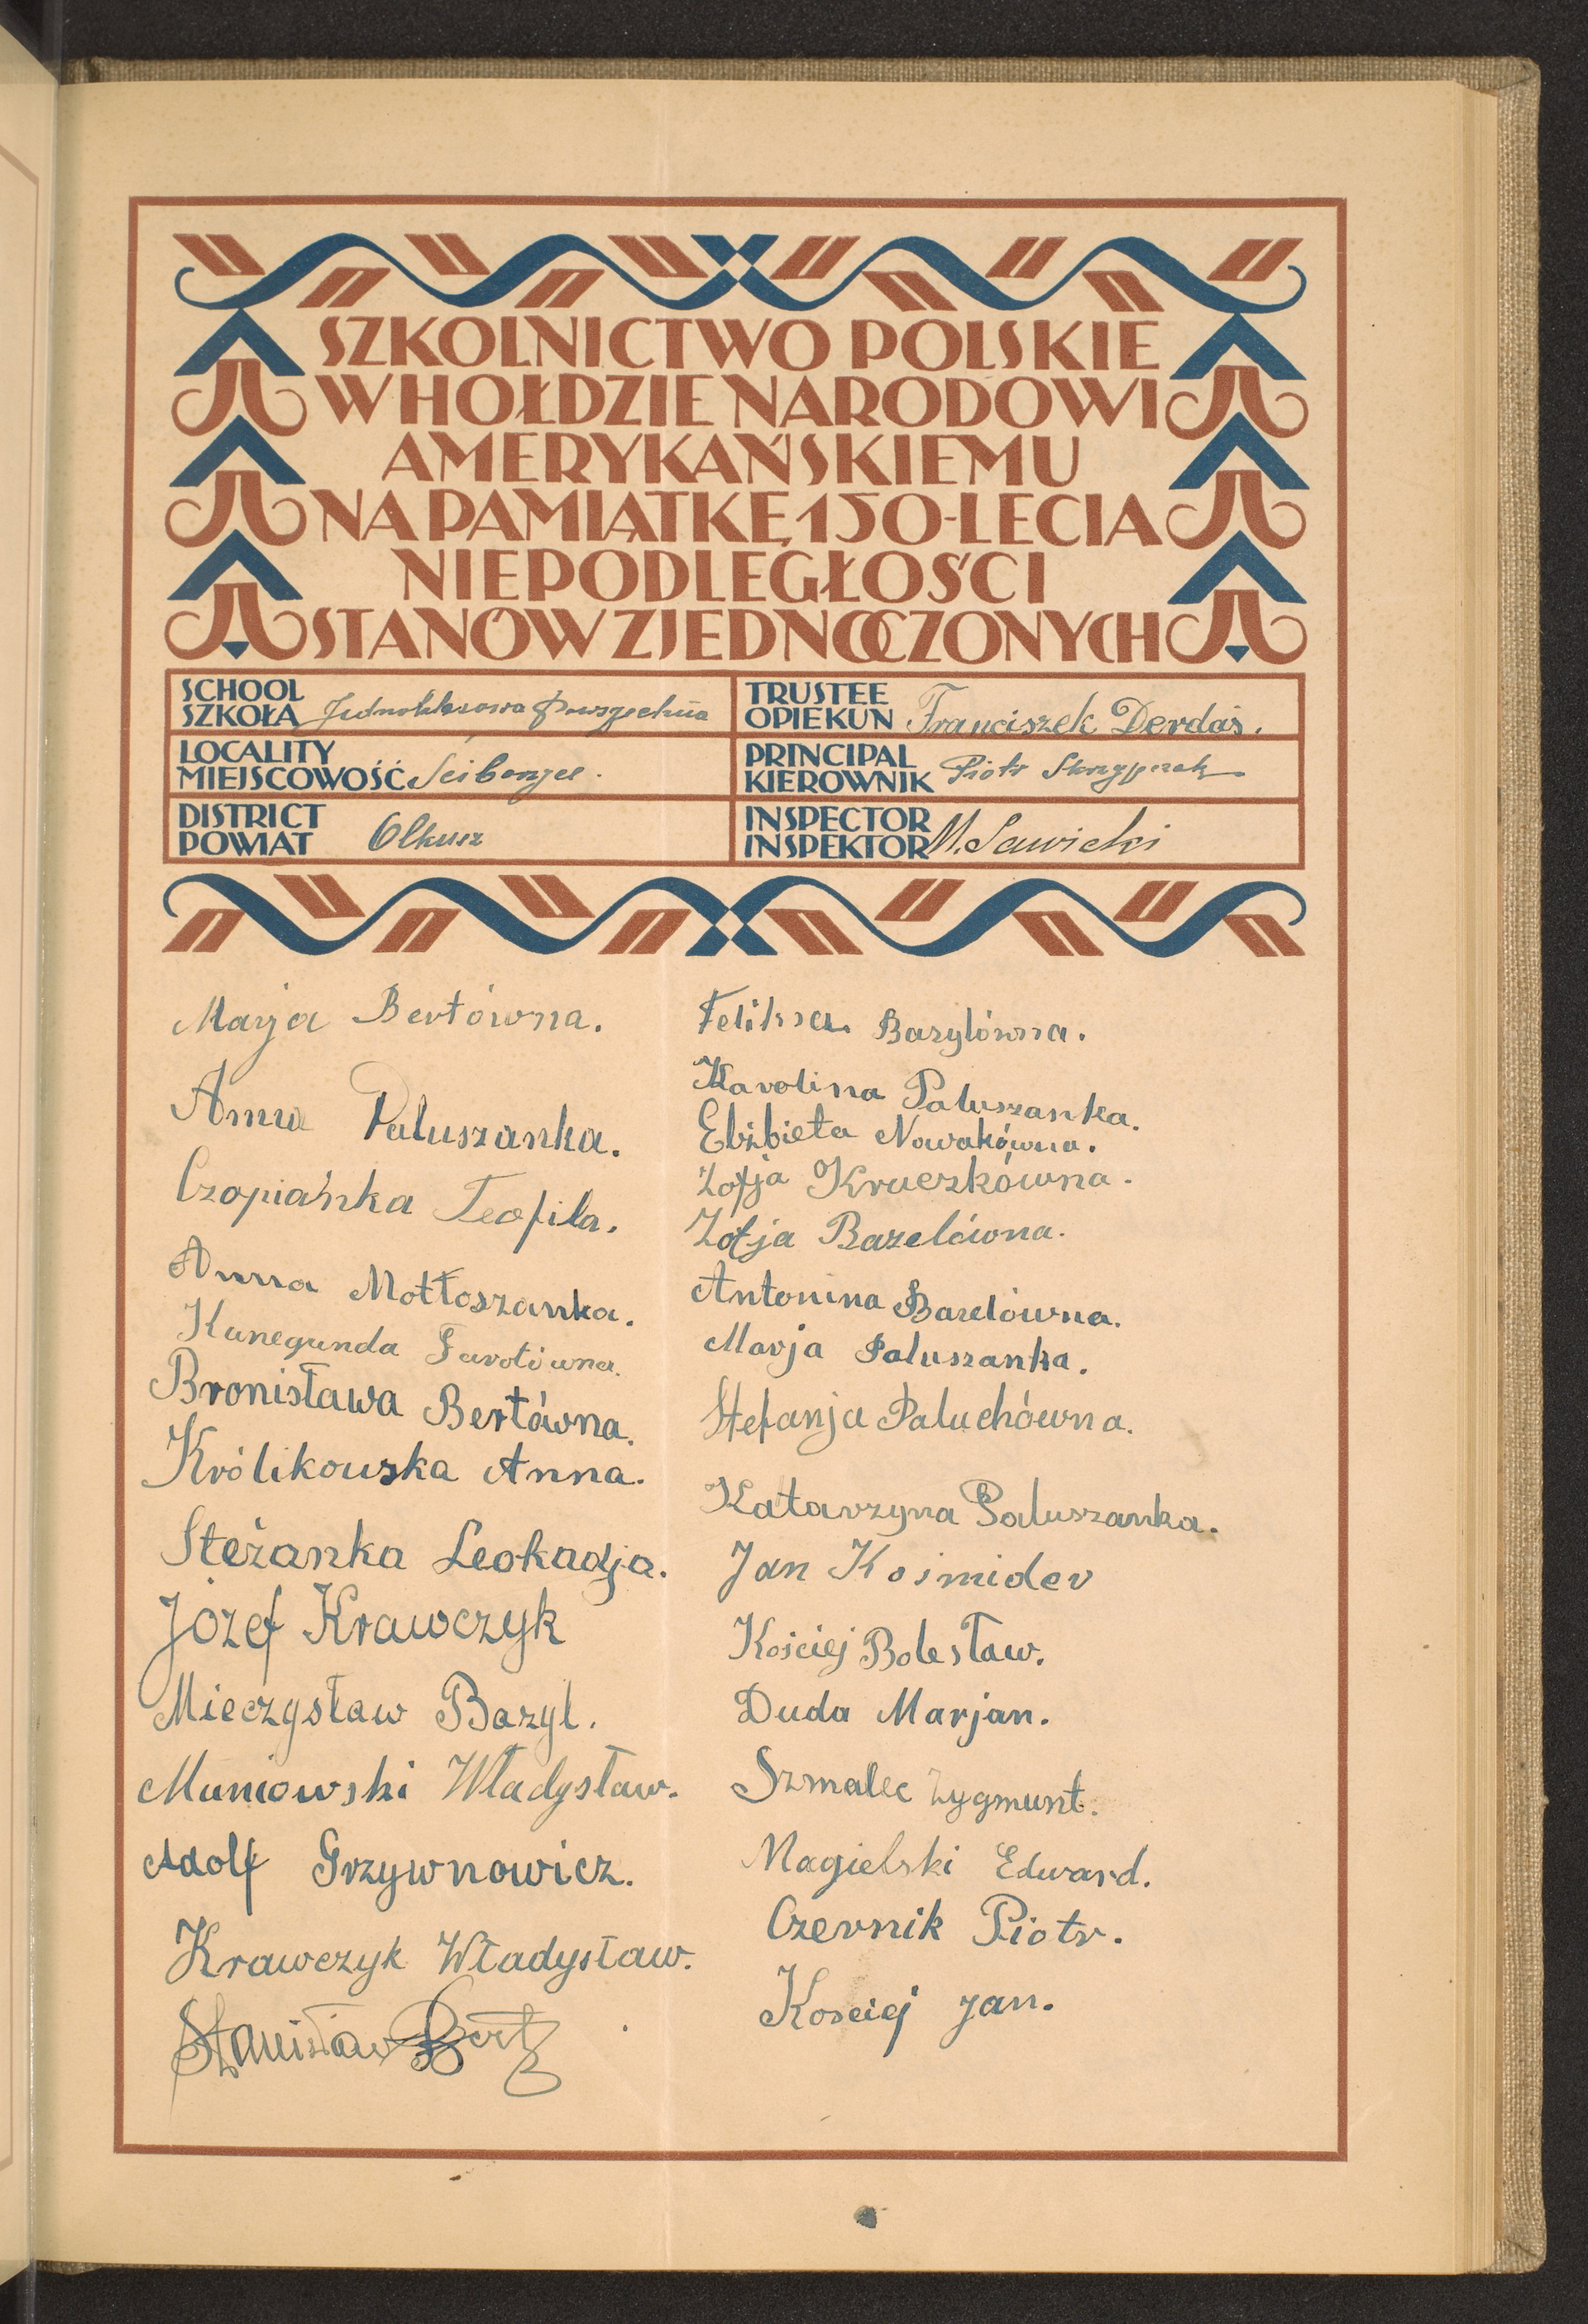 SZKOLNICTWO POLSKIE
W HOŁDZIE NARODOWI
AMERYKAŃSKIEMU
NA PAMIĄTKĘ 150-LECIA
NIEPODLEGŁOŚCI
STANÓW ZJEDNOCZONYCH
SCHOOL
SZKOŁA Jednoklasowa Powszechna
LOCALITY
MIEJSCOWOŚĆ Ściborzyce.
DISTRICT
POWIAT Olkusz
TRUSTEE
OPIEKUN Franciszek Derdaś.
PRINCIPAL
KIEROWNIK Piotr Skrzypczak
INSPECTOR
INSPEKTOR M. Sawicki
Marja Bertówna.
Anna Paluszanka.
Czopiańka Teofila.
Anna Mottoszanka.
Kunegunda
Bronisława Bertówna.
Królikowska Anna.
Steżanka Leokadja.
Józef Krawczyk
Mieczysław Bazyl.
Muniowski Władysław.
Adolf Grzywnowicz.
Krawczyk Władysław.
Stanisław Bert
Feliksa Bazylówna.
Karolina Paluszanka.
Elżbieta Nowakówna.
Zofja Kruczkówna.
Zofja Bazelówna.
Antonina Bazelówna.
Marja Paluszanka.
Stefanja Paluchówna.
Katarzyna Paluszanka.
Jan Kośmider
Kościej Bolesław.
Duda Marjan.
Szmalec Zygmunt.
Magielski Edward.
Czernik Piotr.
Kosciej Jan.